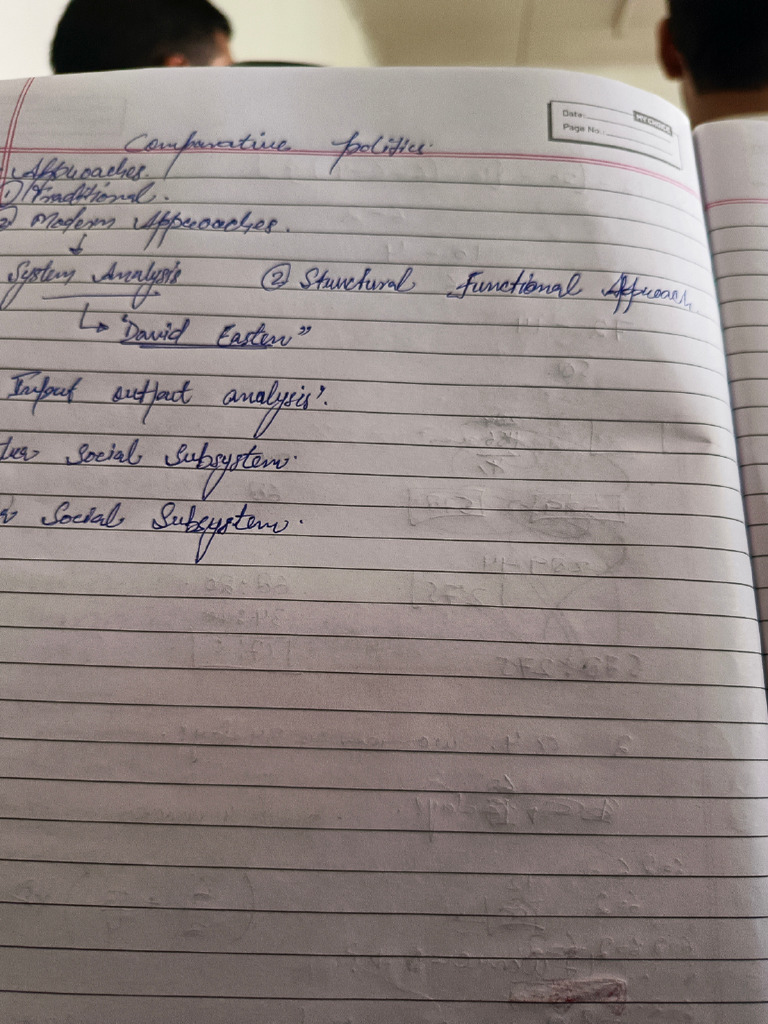 Date:
MY CHOICE
Page No.:
Comparative politics.
Approaches.
1) Traditional.
2) Modern Approaches.
↓
System Analysis ② Structural Functional Approach
↳ "David Easten"
Input output analysis'.
Social Subsystem.
Social Subsystem.